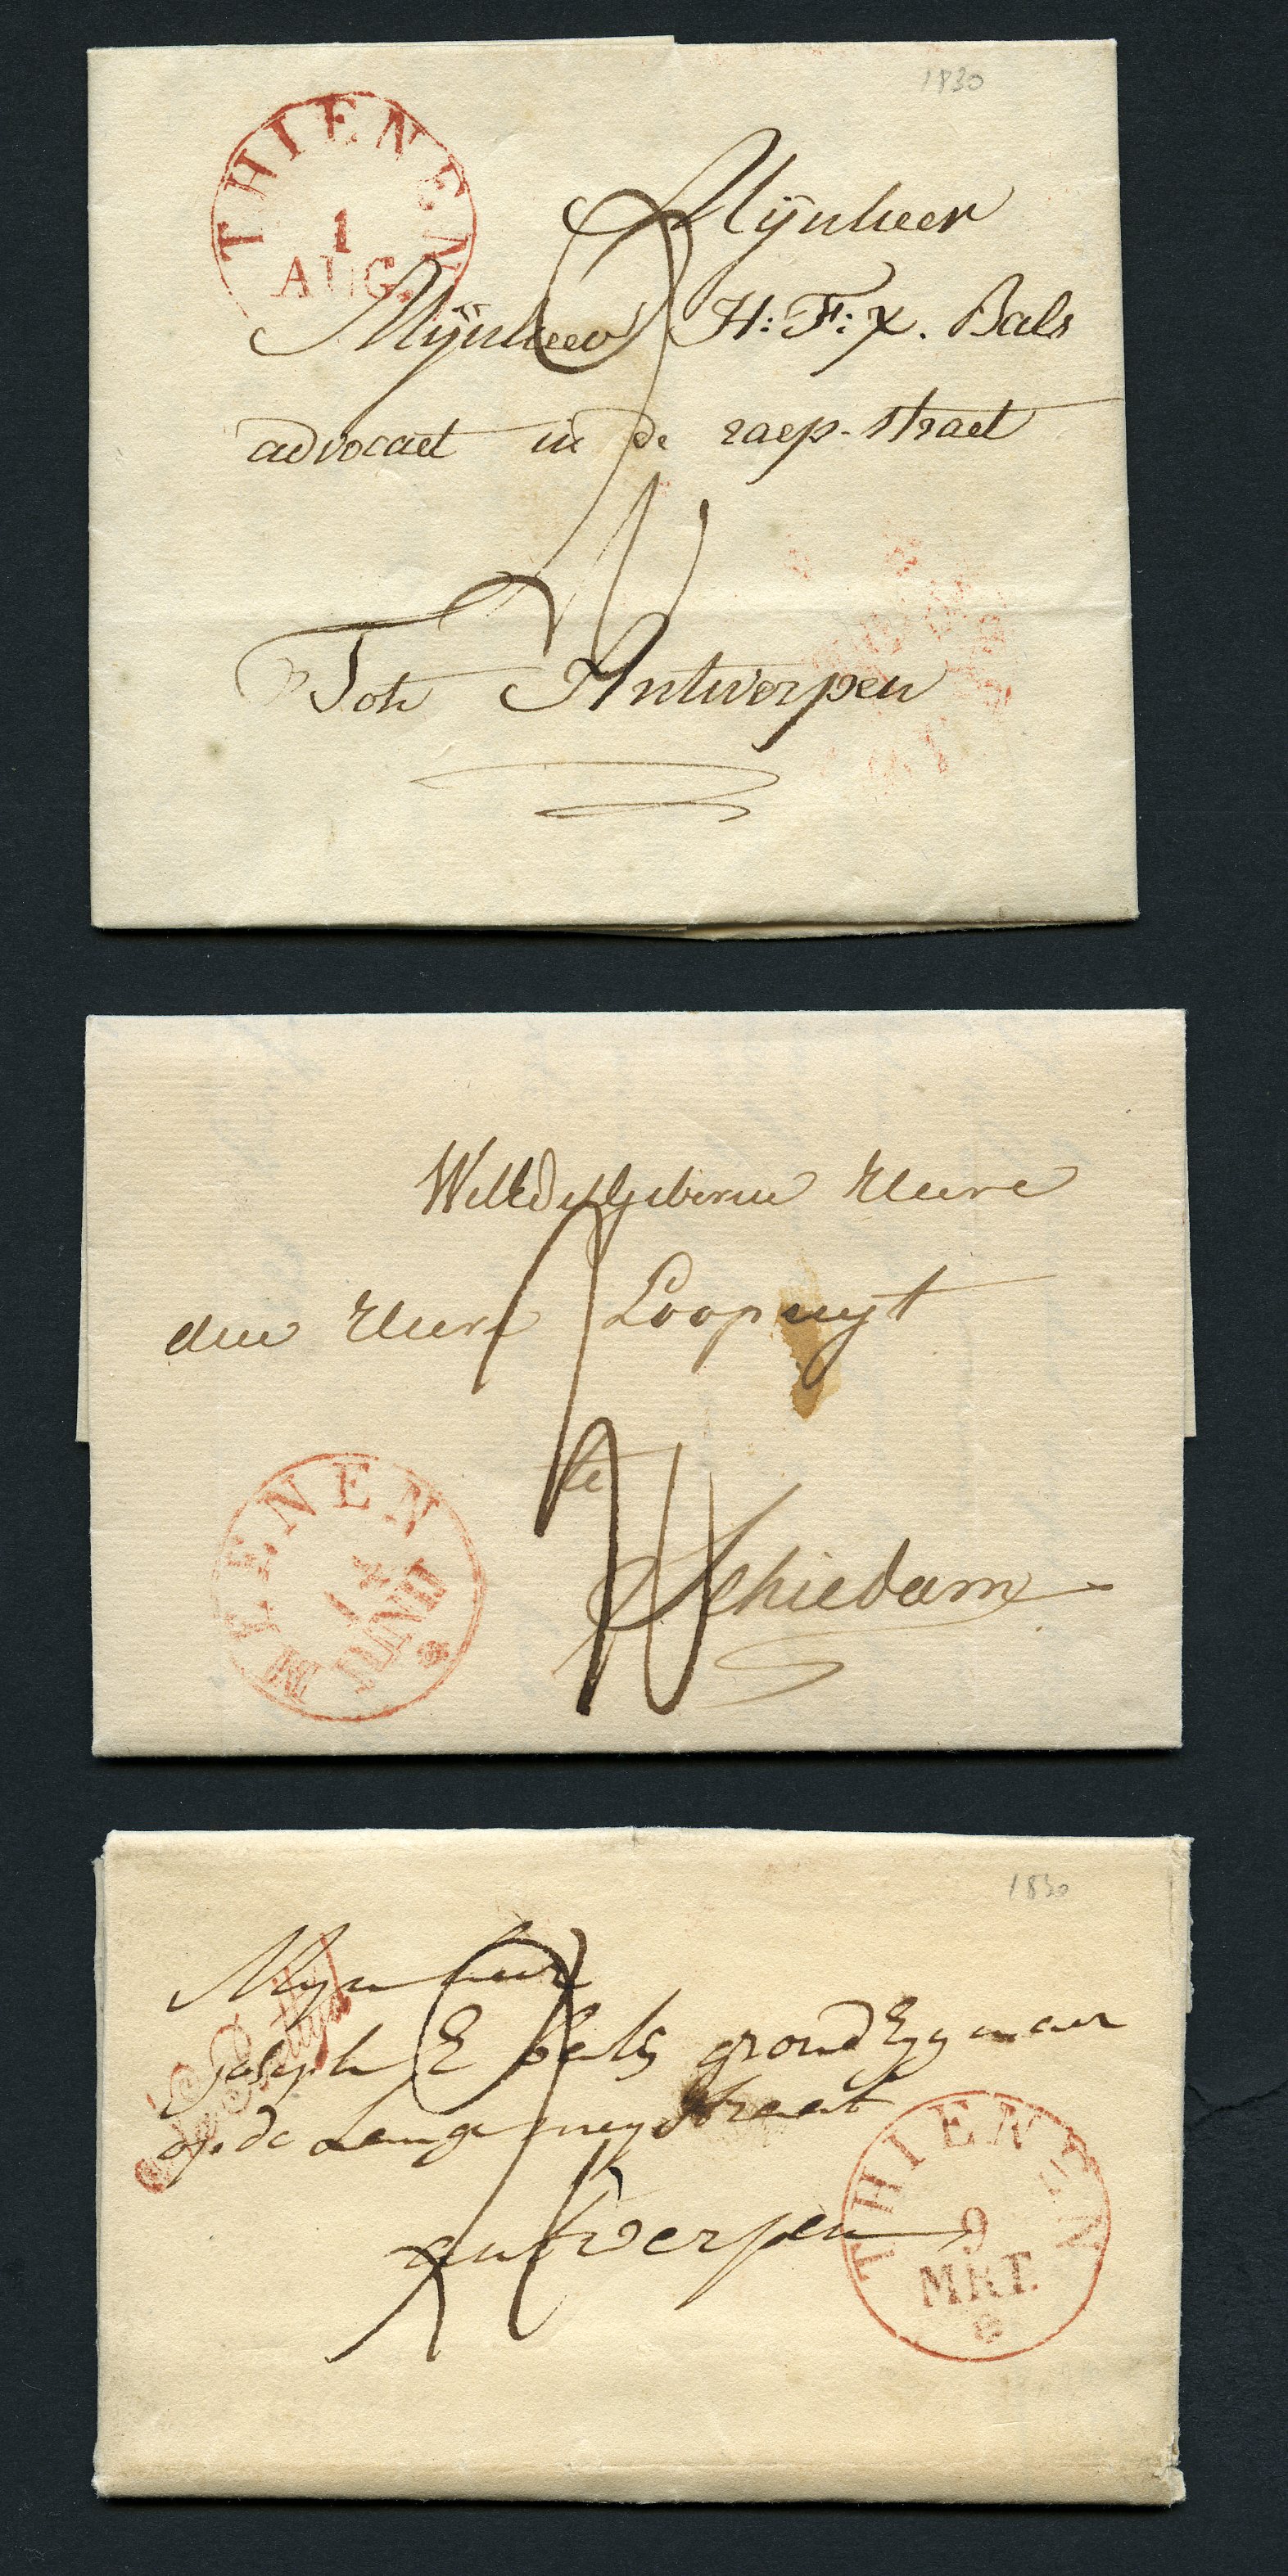 1830
THIENEN
1
AUG.
Mijnheer
Mijnheer H: F: X. Bals
advocaet in de raep-straet
Tot Antwerpen
Heere
den Heere Loopuyt
te
Schiedam
MEENEN
14
JUNIJ
1830
Mynheer
Joseph E bals grond Eygenaer
op de Lange nuy straet
antwerpen
THIENEN
9
MRT.